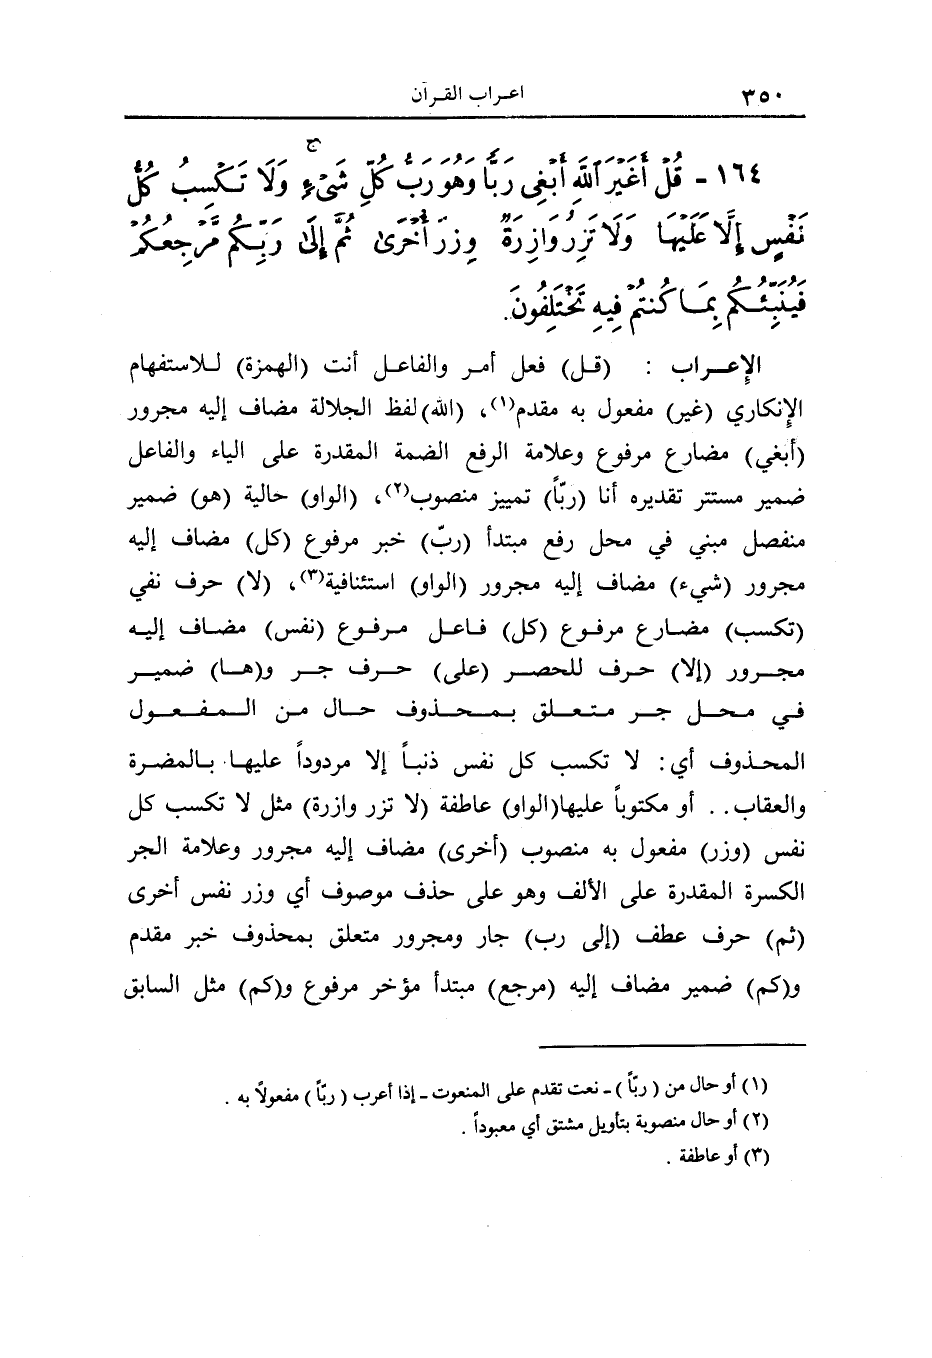 ٣٥٠
اعراب القرآن
١٦٤ - قُلْ أَغَيْرَ ٱللَّهِ أَبْغِى رَبًّا وَهُوَ رَبُّ كُلِّ شَىْءٍ ۚ وَلَا تَكْسِبُ كُلُّ
نَفْسٍ إِلَّا عَلَيْهَا وَلَا تَزِرُ وَازِرَةٌ وِزْرَ أُخْرَىٰ ثُمَّ إِلَىٰ رَبِّكُم مَّرْجِعُكُمْ
فَيُنَبِّئُكُم بِمَا كُنتُمْ فِيهِ تَخْتَلِفُونَ.
الإعـراب : (قـل) فعل أمـر والفاعـل أنت (الهمزة) للاستفهام
الإنكاري (غير) مفعول به مقدم(١)، (الله) لفظ الجلالة مضاف إليه مجرور
(أبغي) مضارع مرفوع وعلامة الرفع الضمة المقدرة على الياء والفاعل
ضمير مستتر تقديره أنا (ربّاً) تمييز منصوب(٢)، (الواو) حالية (هو) ضمير
منفصل مبني في محل رفع مبتدأ (ربّ) خبر مرفوع (كل) مضاف إليه
مجرور (شيء) مضاف إليه مجرور (الواو) استئنافية(٣)، (لا) حرف نفي
(تكسب) مضارع مرفوع (كل) فاعل مرفوع (نفس) مضاف إليه
مجرور (إلا) حرف للحصر (على) حرف جر و(ها) ضمير
في محل جر متعلق بمحذوف حال من المفعول
المحذوف أي: لا تكسب كل نفس ذنباً إلا مردوداً عليها بالمضرة
والعقاب.. أو مكتوباً عليها(الواو) عاطفة (لا تزر وازرة) مثل لا تكسب كل
نفس (وزر) مفعول به منصوب (أخرى) مضاف إليه مجرور وعلامة الجر
الكسرة المقدرة على الألف وهو على حذف موصوف أي وزر نفس أخرى
(ثم) حرف عطف (إلى رب) جار ومجرور متعلق بمحذوف خبر مقدم
و(كم) ضمير مضاف إليه (مرجع) مبتدأ مؤخر مرفوع و(كم) مثل السابق
(١) أو حال من ( ربّاً ) ـ نعت تقدم على المنعوت ـ إذا أعرب ( ربّاً ) مفعولاً به .
(٢) أو حال منصوبة بتأويل مشتق أي معبوداً .
(٣) أو عاطفة .